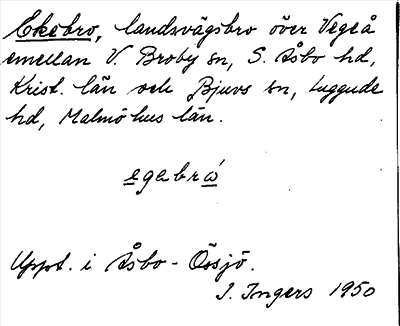 Ekebro, landsvägsbro över Vegeå
emellan V. Broby sn, S. Åsbo hd,
Krist. län och Bjuvs sn, Luggude
hd, Malmöhus län.
egabró
Uppt. i Åsbo-Össjö.
I. Ingers 1950